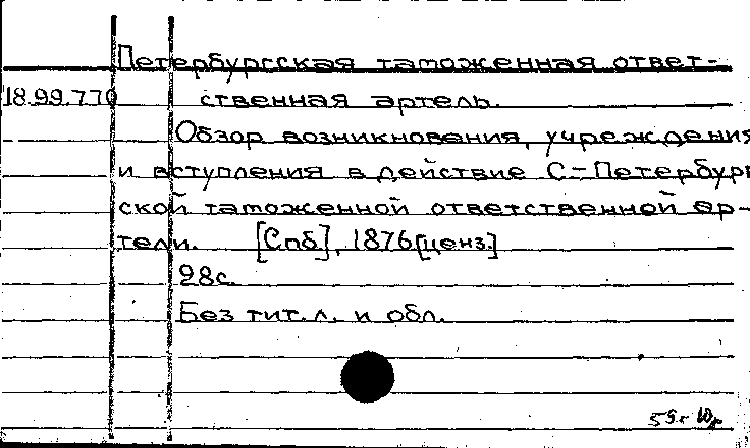 Петербургсская таможенная ответ-
18.99.770 ственная артель.
Обзор возникновения, учреждения
и вступления в действие С-Петербург
ской таможенной ответственной ар-
тели. [Спб], 1876 [ценз.]
28с.
Без тит.л. и обл.